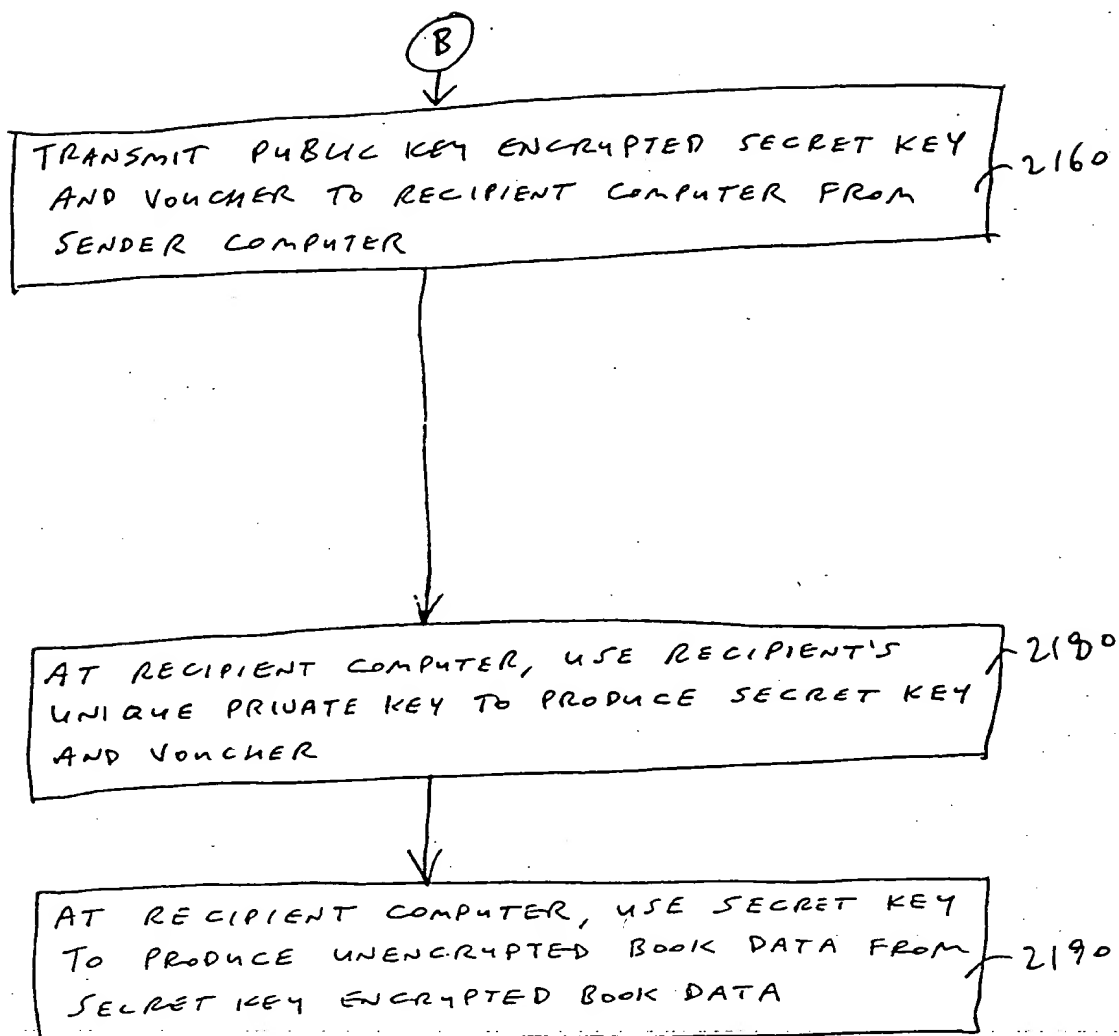 B
TRANSMIT PUBLIC KEY ENCRYPTED SECRET KEY
AND VOUCHER TO RECIPIENT COMPUTER FROM
SENDER COMPUTER
2160
AT RECIPIENT COMPUTER, USE RECIPIENT'S
UNIQUE PRIVATE KEY TO PRODUCE SECRET KEY
AND VOUCHER
2180
AT RECIPIENT COMPUTER, USE SECRET KEY
TO PRODUCE UNENCRYPTED BOOK DATA FROM
SECRET KEY ENCRYPTED BOOK DATA
2190